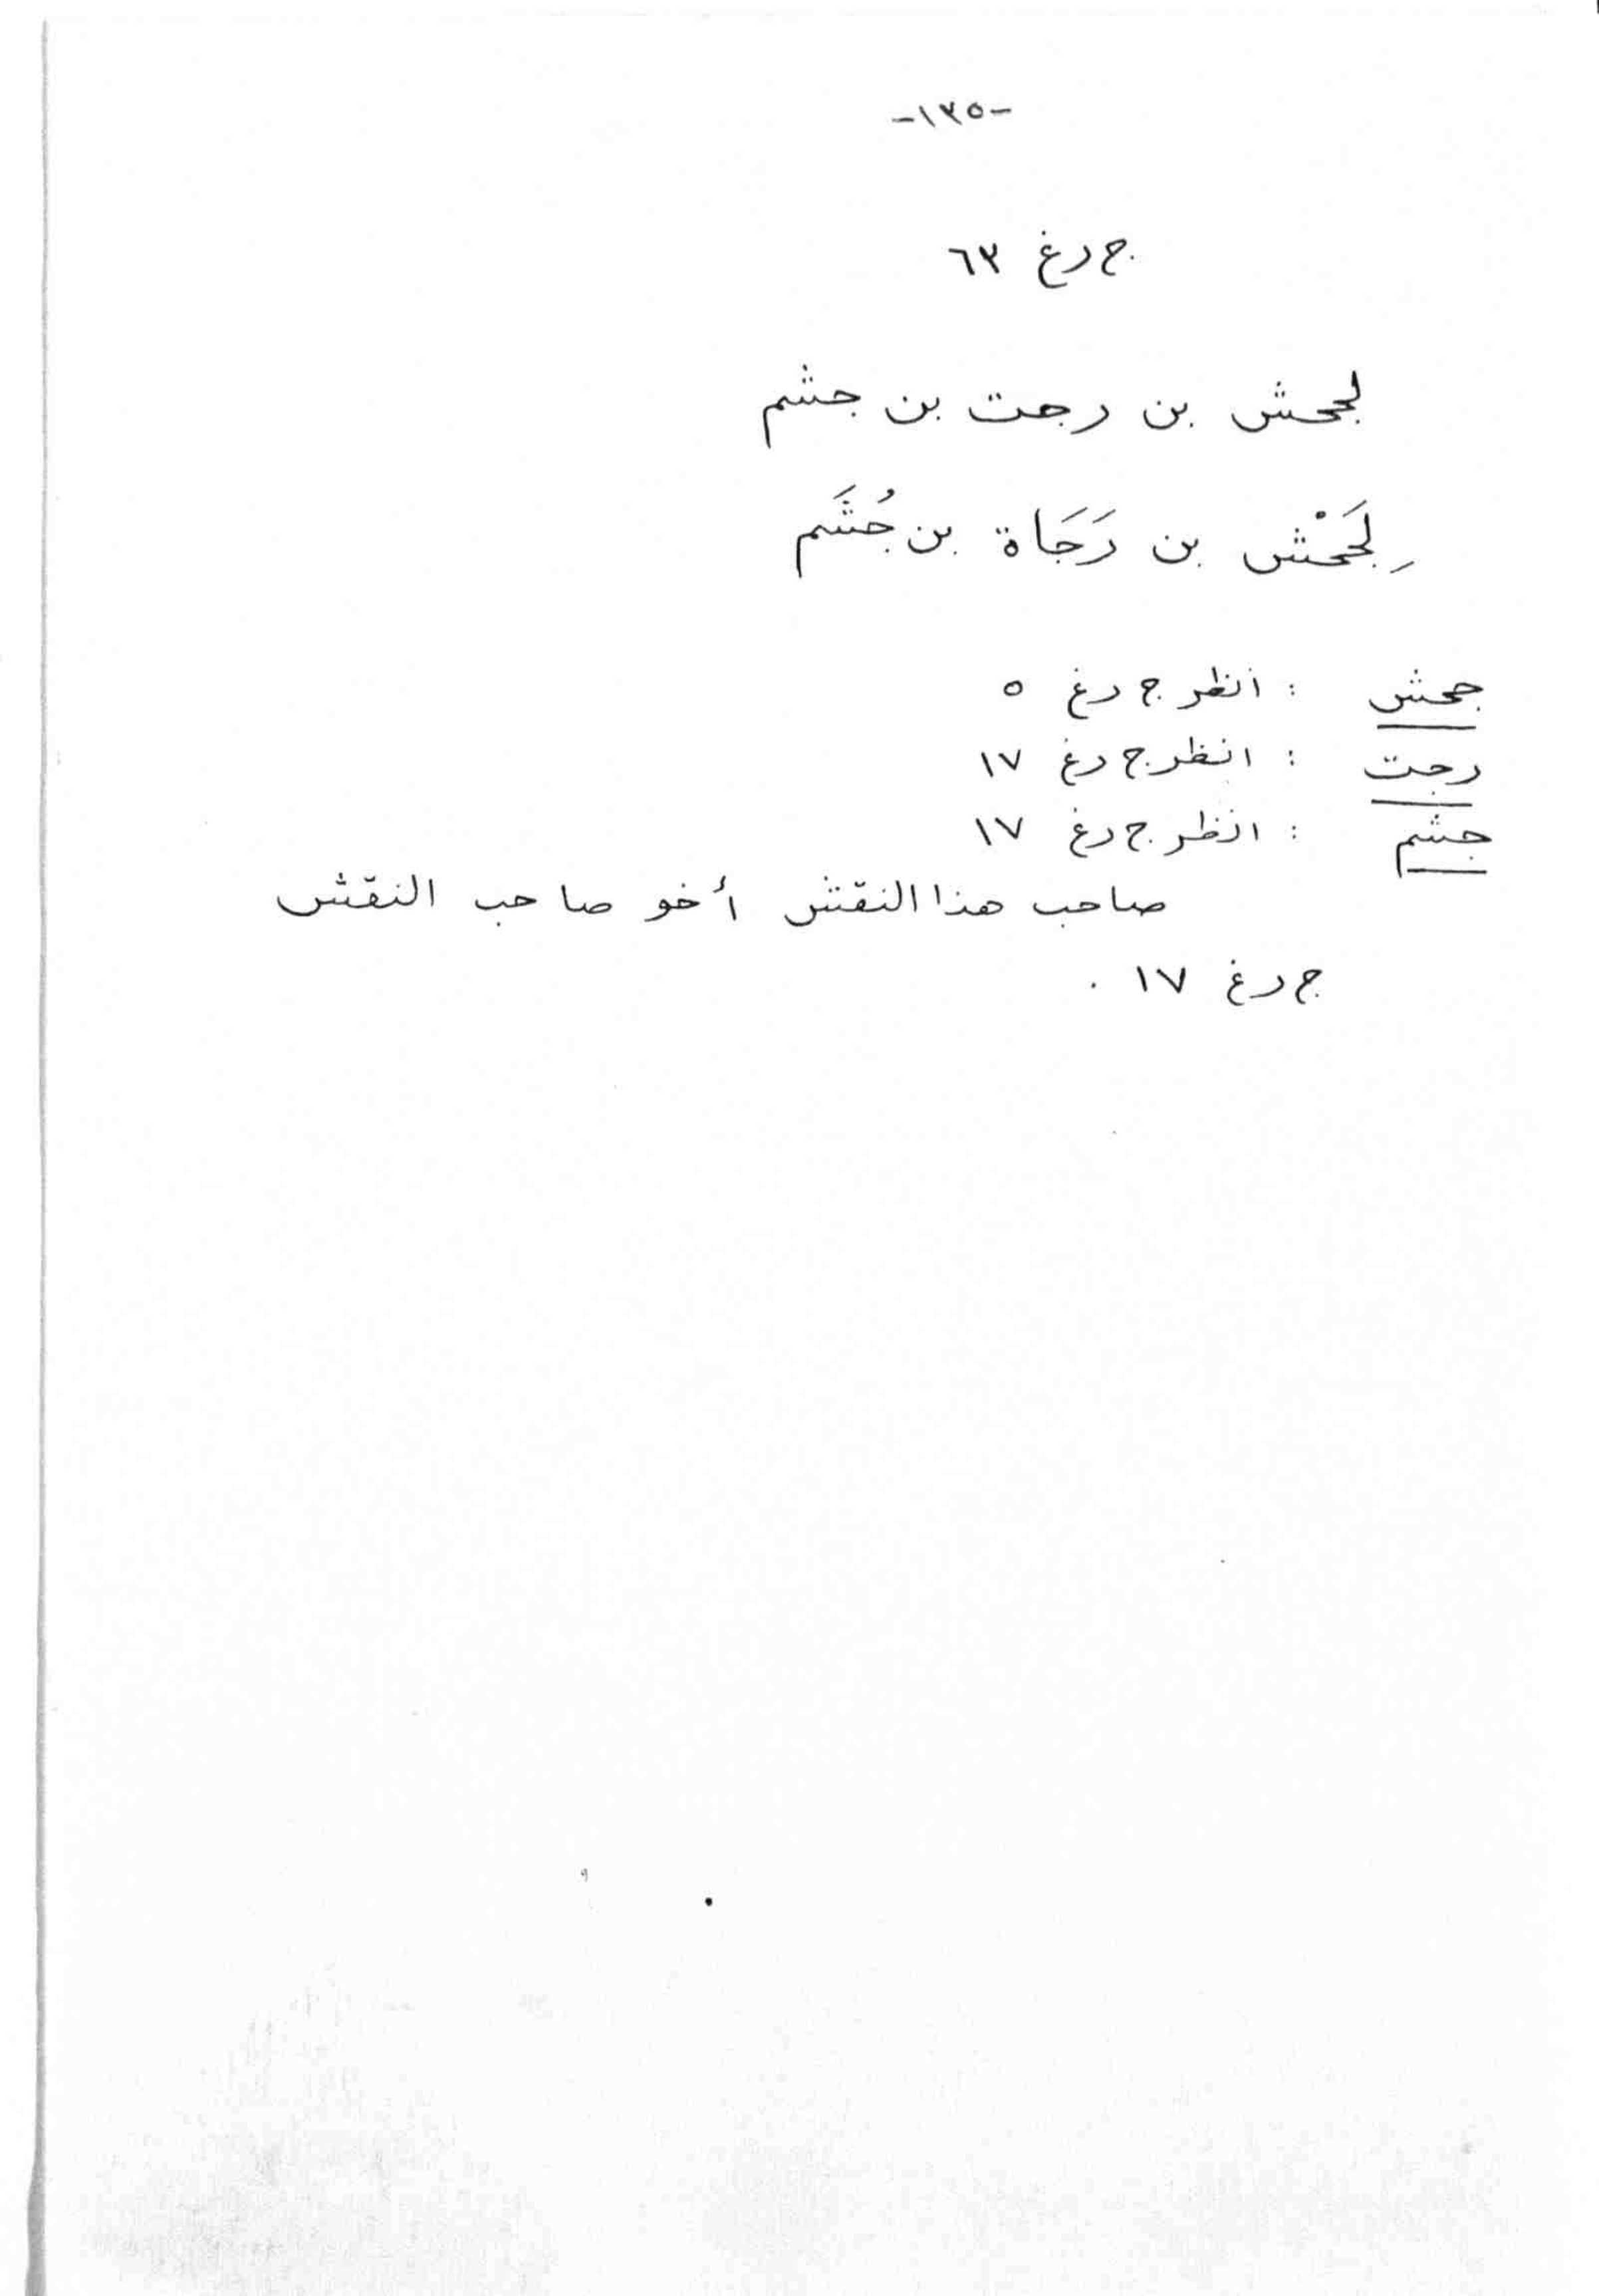 -١٣٥-
ج رغ ٦٣
لجحش بن رجت بن جشم
لِجَحْش بن رَجَاة بن جُشَم
جحش : انظر ج رغ ٥
رجت : انظر ج رغ ١٧
جشم : انظر ج رغ ١٧
صاحب هذا النقش أخو صاحب النقش
ج رغ ١٧ .